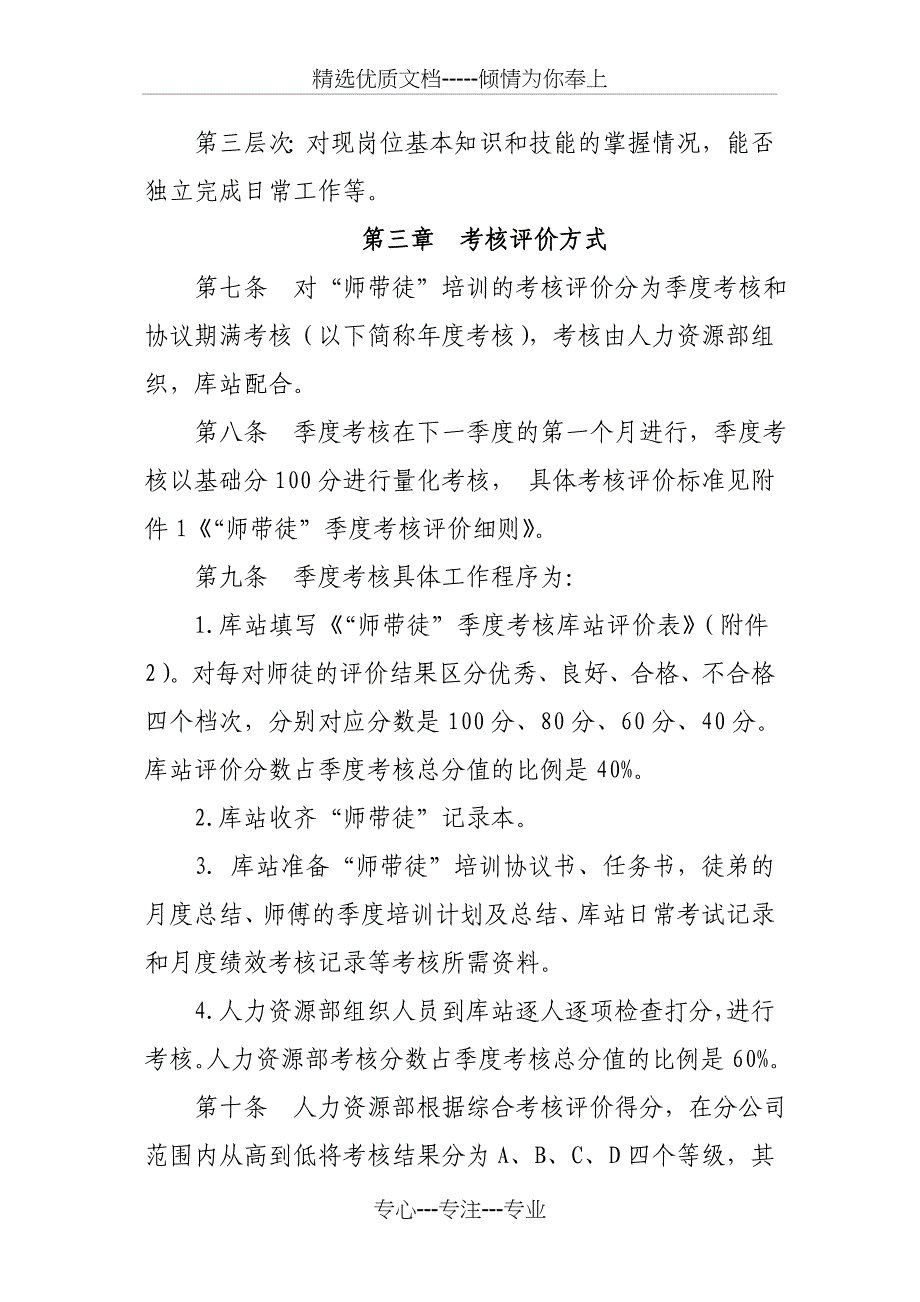 精选优质文档-----倾情为你奉上
第三层次：对现岗位基本知识和技能的掌握情况，能否
独立完成日常工作等。
第三章　考核评价方式
第七条　对“师带徒”培训的考核评价分为季度考核和
协议期满考核（以下简称年度考核），考核由人力资源部组
织，库站配合。
第八条　季度考核在下一季度的第一个月进行，季度考
核以基础分 100 分进行量化考核， 具体考核评价标准见附
件 1《“师带徒”季度考核评价细则》。
第九条　季度考核具体工作程序为：
1.库站填写《“师带徒”季度考核库站评价表》（附件
2）。对每对师徒的评价结果区分优秀、良好、合格、不合格
四个档次，分别对应分数是 100 分、80 分、60 分、40 分。
库站评价分数占季度考核总分值的比例是 40%。
2.库站收齐“师带徒”记录本。
3. 库站准备“师带徒”培训协议书、任务书，徒弟的
月度总结、师傅的季度培训计划及总结、库站日常考试记录
和月度绩效考核记录等考核所需资料。
4.人力资源部组织人员到库站逐人逐项检查打分，进行
考核。人力资源部考核分数占季度考核总分值的比例是 60%。
第十条　人力资源部根据综合考核评价得分，在分公司
范围内从高到低将考核结果分为 A、B、C、D 四个等级，其
专心---专注---专业